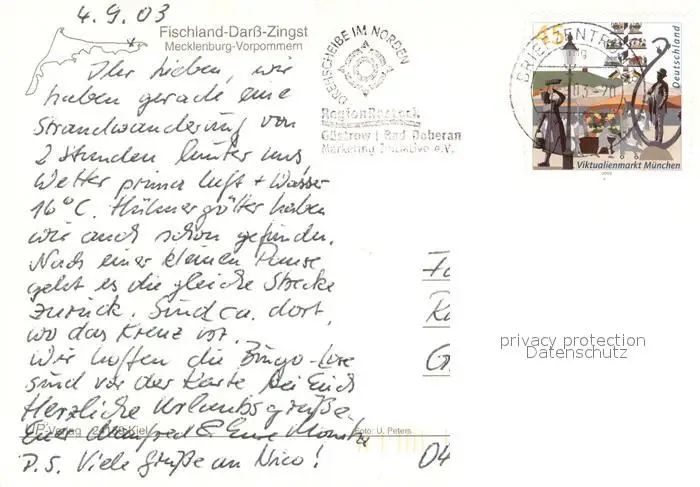 4.9.03
Fischland-Darß-Zingst
Mecklenburg-Vorpommern
Ihr Lieben, wir
haben gerade eine
Strandwanderung von
2 Stunden hinter uns
Wetter prima Luft + Wasser
16°C. Hühnergötter haben
wir auch schon gefunden.
Nach einer kleinen Pause
geht es die gleiche Strecke
zurück. Sind ca. dort,
wo das Kreuz ist.
Wir hoffen die Bingo-Lose
sind vor der Karte bei Euch
Herzliche Urlaubsgrüße
Eure Manfred & Eure Monika
P.S. Viele Grüße an Nico!
UP-Verlag 24159 Kiel
Foto: U. Peters
DREHSCHEIBE IM NORDEN
Region Rostock
Güstrow | Bad Doberan
Marketing Initiative e.V.
BRIEFZENTRUM
45
Deutschland
Viktualienmarkt München
2003
04
privacy protection
Datenschutz